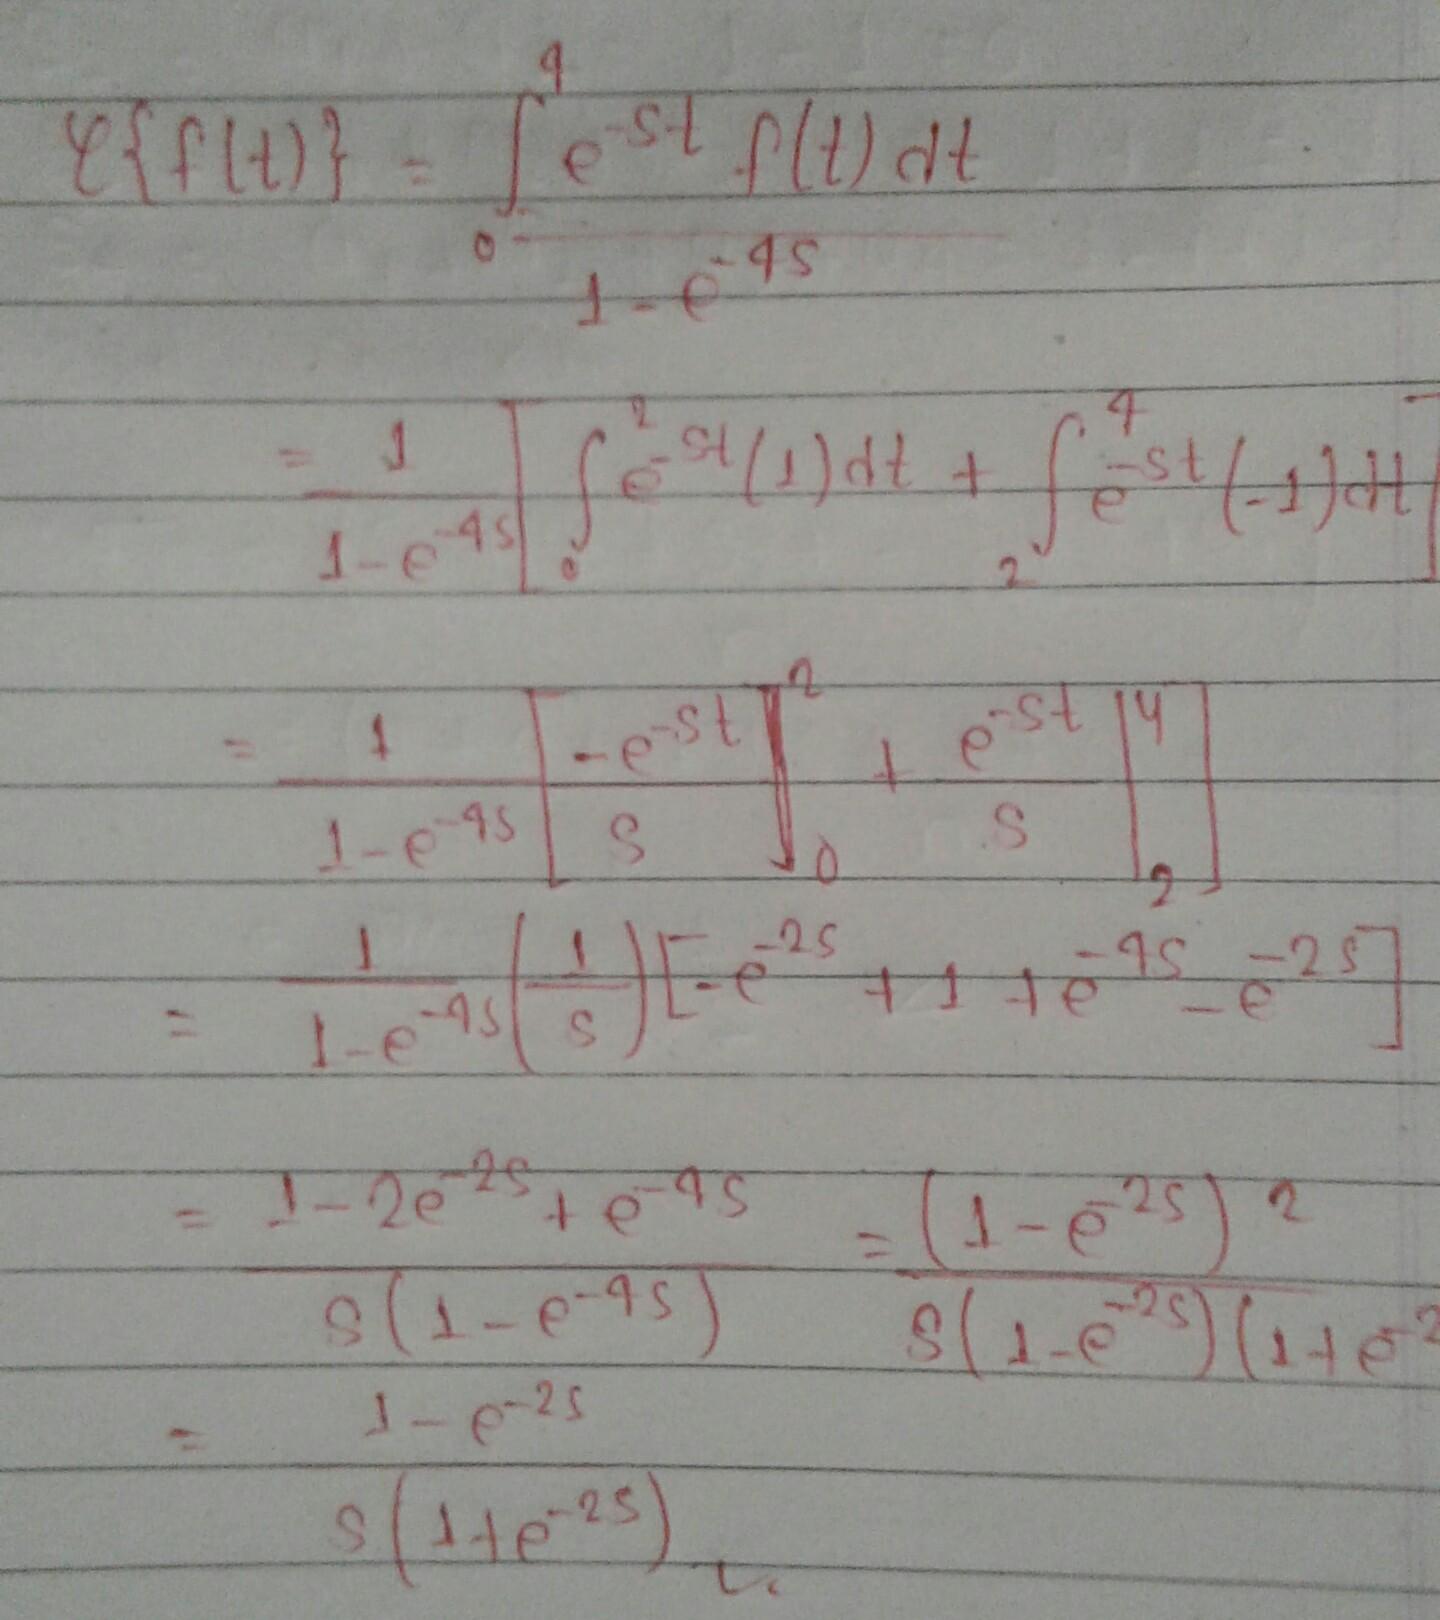 ℒ{f(t)} = ∫₀⁴ e^{-st} f(t) dt / (1 - e^{-4s})
= 1/(1 - e^{-4s}) [ ∫₀² e^{-st} (1) dt + ∫₂⁴ e^{-st} (-1) dt ]
= 1/(1 - e^{-4s}) [ -e^{-st}/s ]₀² + e^{-st}/s |₂⁴ ]
= 1/(1 - e^{-4s}) (1/s) [ -e^{-2s} + 1 + e^{-4s} - e^{-2s} ]
= (1 - 2e^{-2s} + e^{-4s}) / (s(1 - e^{-4s})) = (1 - e^{-2s})² / (s(1 - e^{-2s})(1 + e^{-2
= (1 - e^{-2s}) / (s(1 + e^{-2s}))